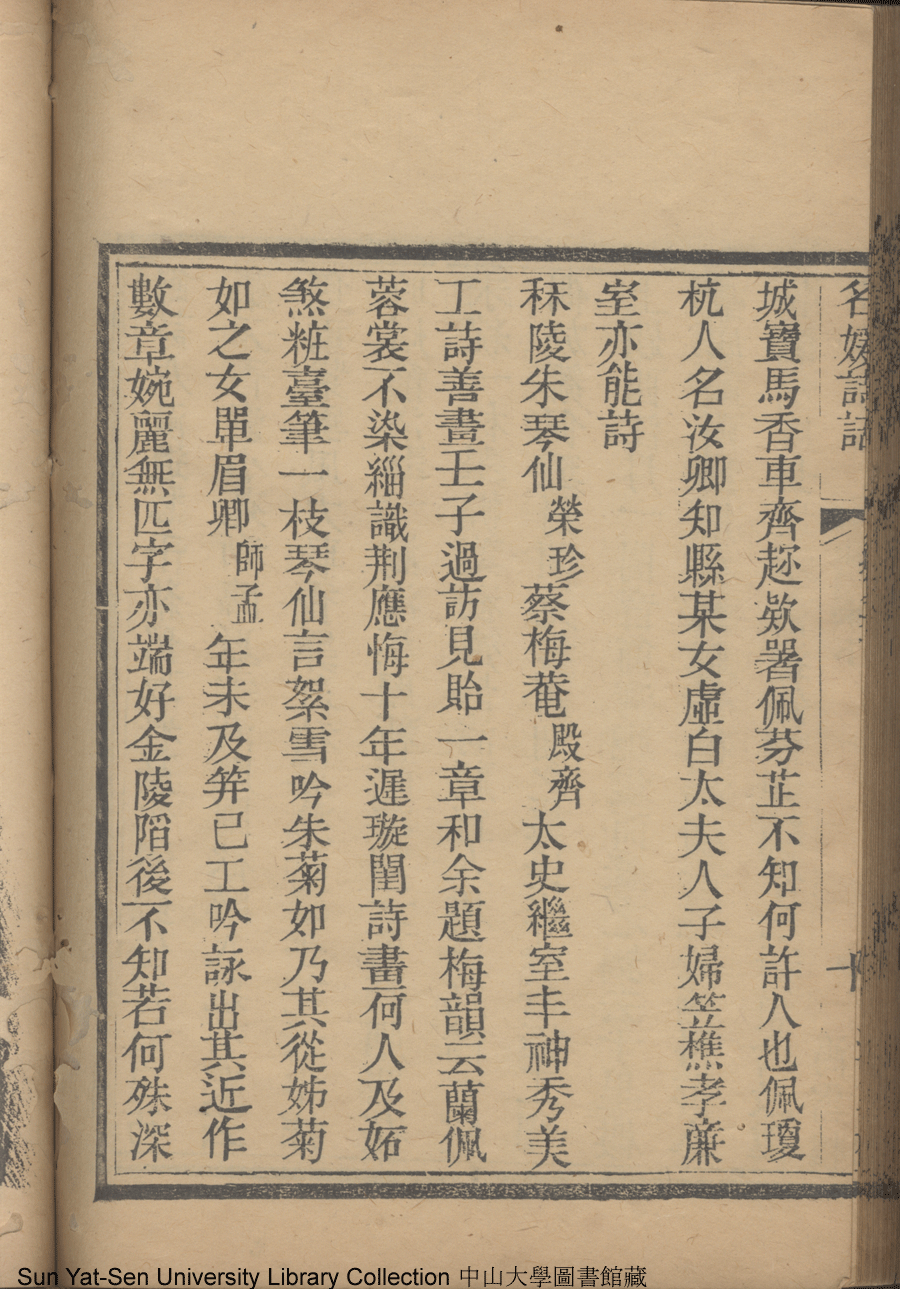 名媛詩話
十
城寶馬香車齊趂欵署佩芬芷不知何許人也佩瓊
杭人名汝卿知縣某女虛白太夫人子婦笠樵孝廉
室亦能詩
秣陵朱琴仙榮珍蔡梅菴殿齊太史繼室丰神秀美
工詩善畫壬子過訪見貽一章和余題梅韻云蘭佩
蓉裳不染緇識荆應悔十年遲璇閨詩畫何人及妬
煞粧臺筆一枝琴仙言絮雪吟朱菊如乃其從姊菊
如之女單眉卿師孟年未及筓已工吟詠出其近作
數章婉麗無匹字亦端好金陵䧟後不知若何殊深
Sun Yat-Sen University Library Collection 中山大學圖書館藏